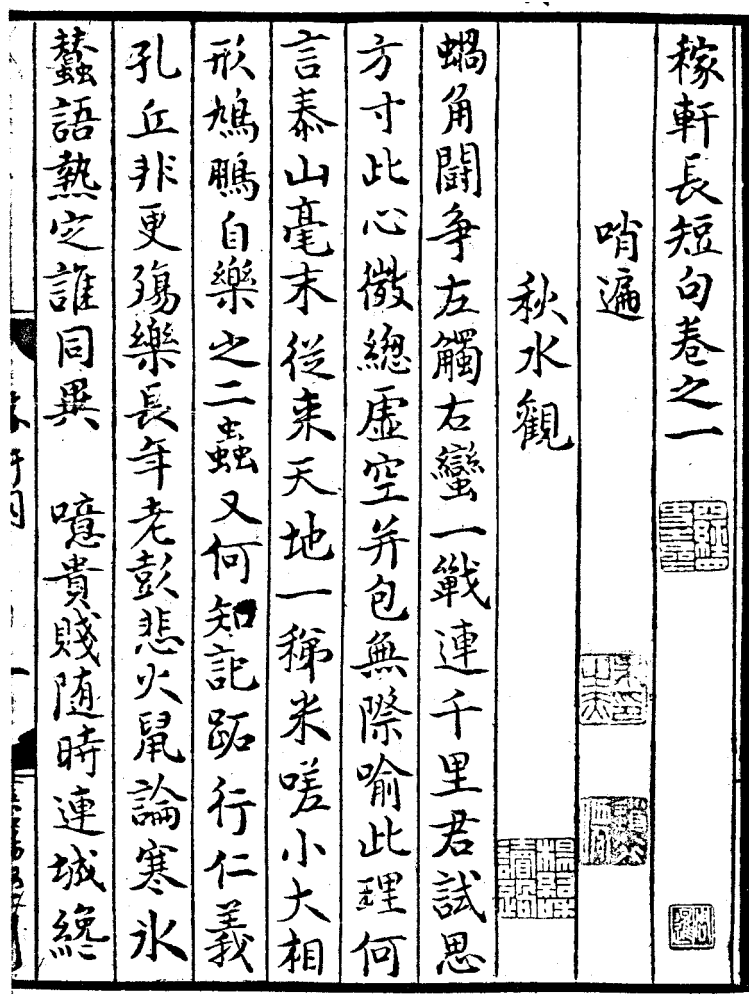 稼軒長短句卷之一
哨遍
秋水觀
蝸角鬪爭左觸右蠻一戰連千里君試思
方寸此心微總虛空并包無際喻此理何
言泰山毫末從来天地一稊米嗟小大相
形鳩鵬自樂之二蟲又何知記跖行仁義
孔丘非更殤樂長年老彭悲火鼠論寒冰
蠶語熱定誰同異　噫貴賤随時連城纔